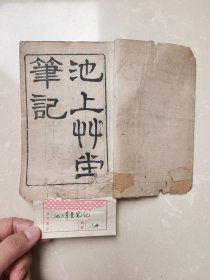 池上艸堂
筆記
池上草堂笔记